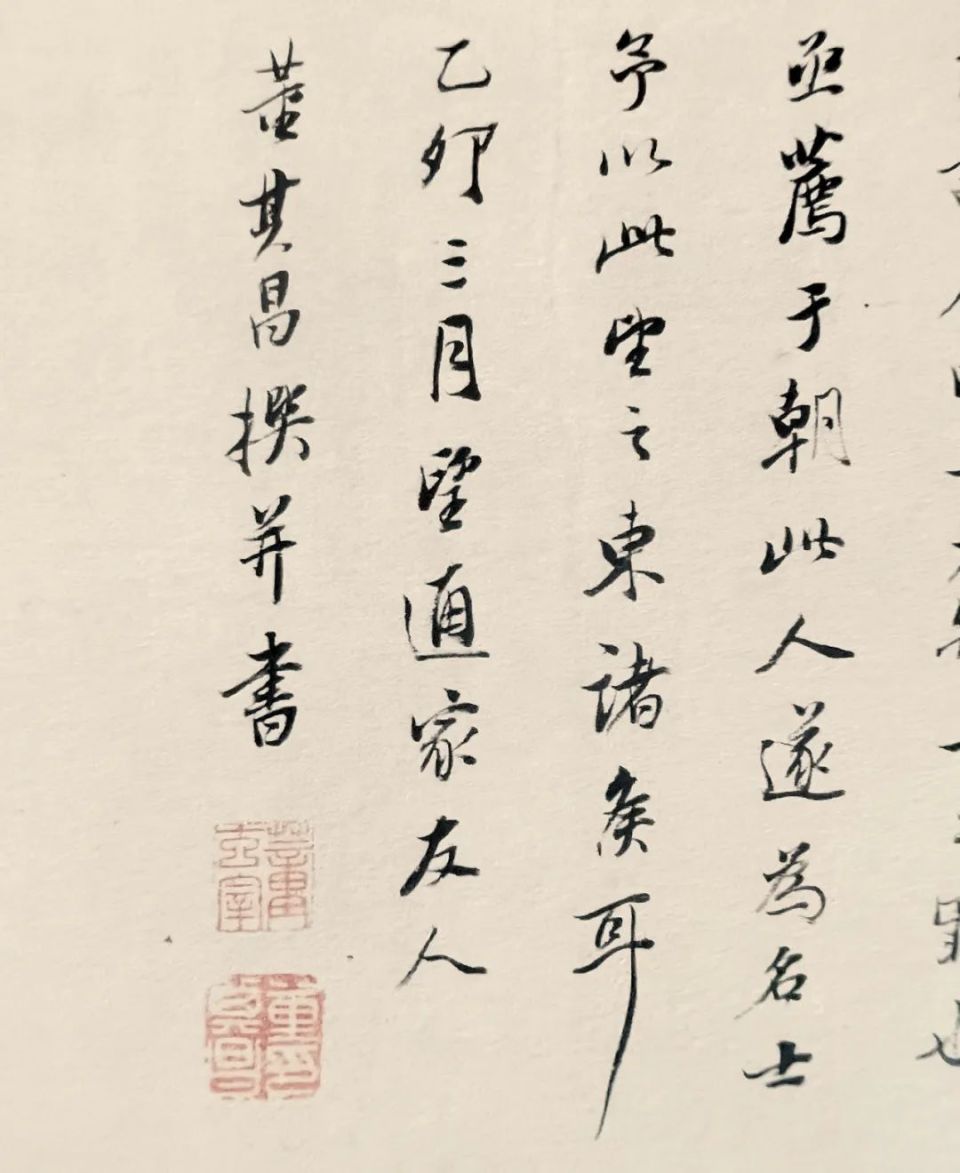 亟薦于朝此人遂為名士
予以此望之東諸侯耳
乙卯三月望通家友人
董其昌撰并書